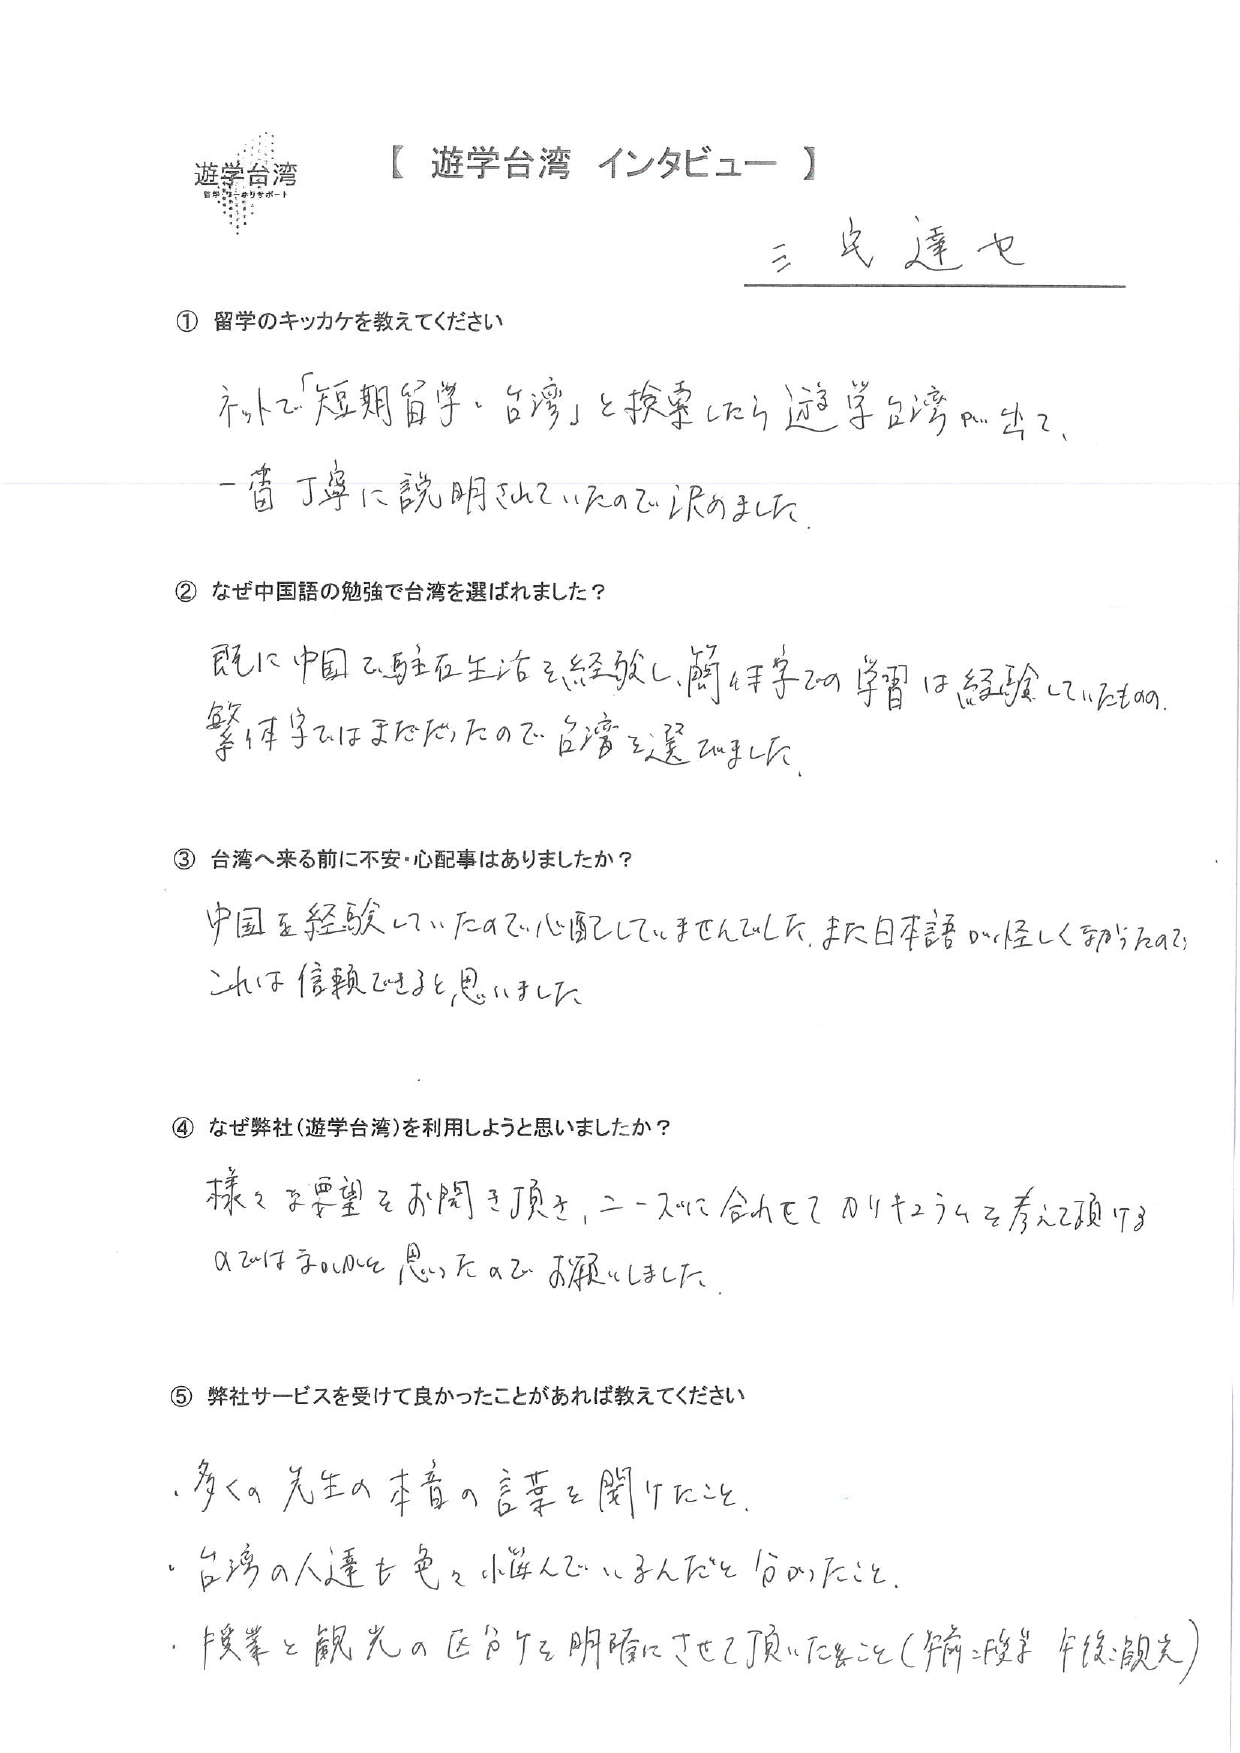 遊学台湾
【 遊学台湾 インタビュー 】
三宅達也
① 留学のキッカケを教えてください
ネットで「短期留学・台湾」と検索したら遊学台湾が出て、
一番丁寧に説明されていたので決めました.
② なぜ中国語の勉強で台湾を選ばれました？
既に中国で駐在生活を経験し、簡体字での学習は経験していたものの、
繁体字ではまだだったので台湾を選びました.
③ 台湾へ来る前に不安・心配事はありましたか？
中国を経験していたので心配していませんでした. また日本語が怪しくなかったので
これは信頼できると思いました
④ なぜ弊社(遊学台湾)を利用しようと思いましたか？
様々な要望をお聞き頂き, ニーズに合わせてカリキュラムを考えて頂ける
のではないかと思ったのでお願いしました.
⑤ 弊社サービスを受けて良かったことがあれば教えてください
・多くの先生の本音の言葉を聞けたこと.
・台湾の人達も色々悩んでいるんだと分かったこと.
・授業と観光の区分けを明確にさせて頂いたこと(午前:授業 午後:観光)